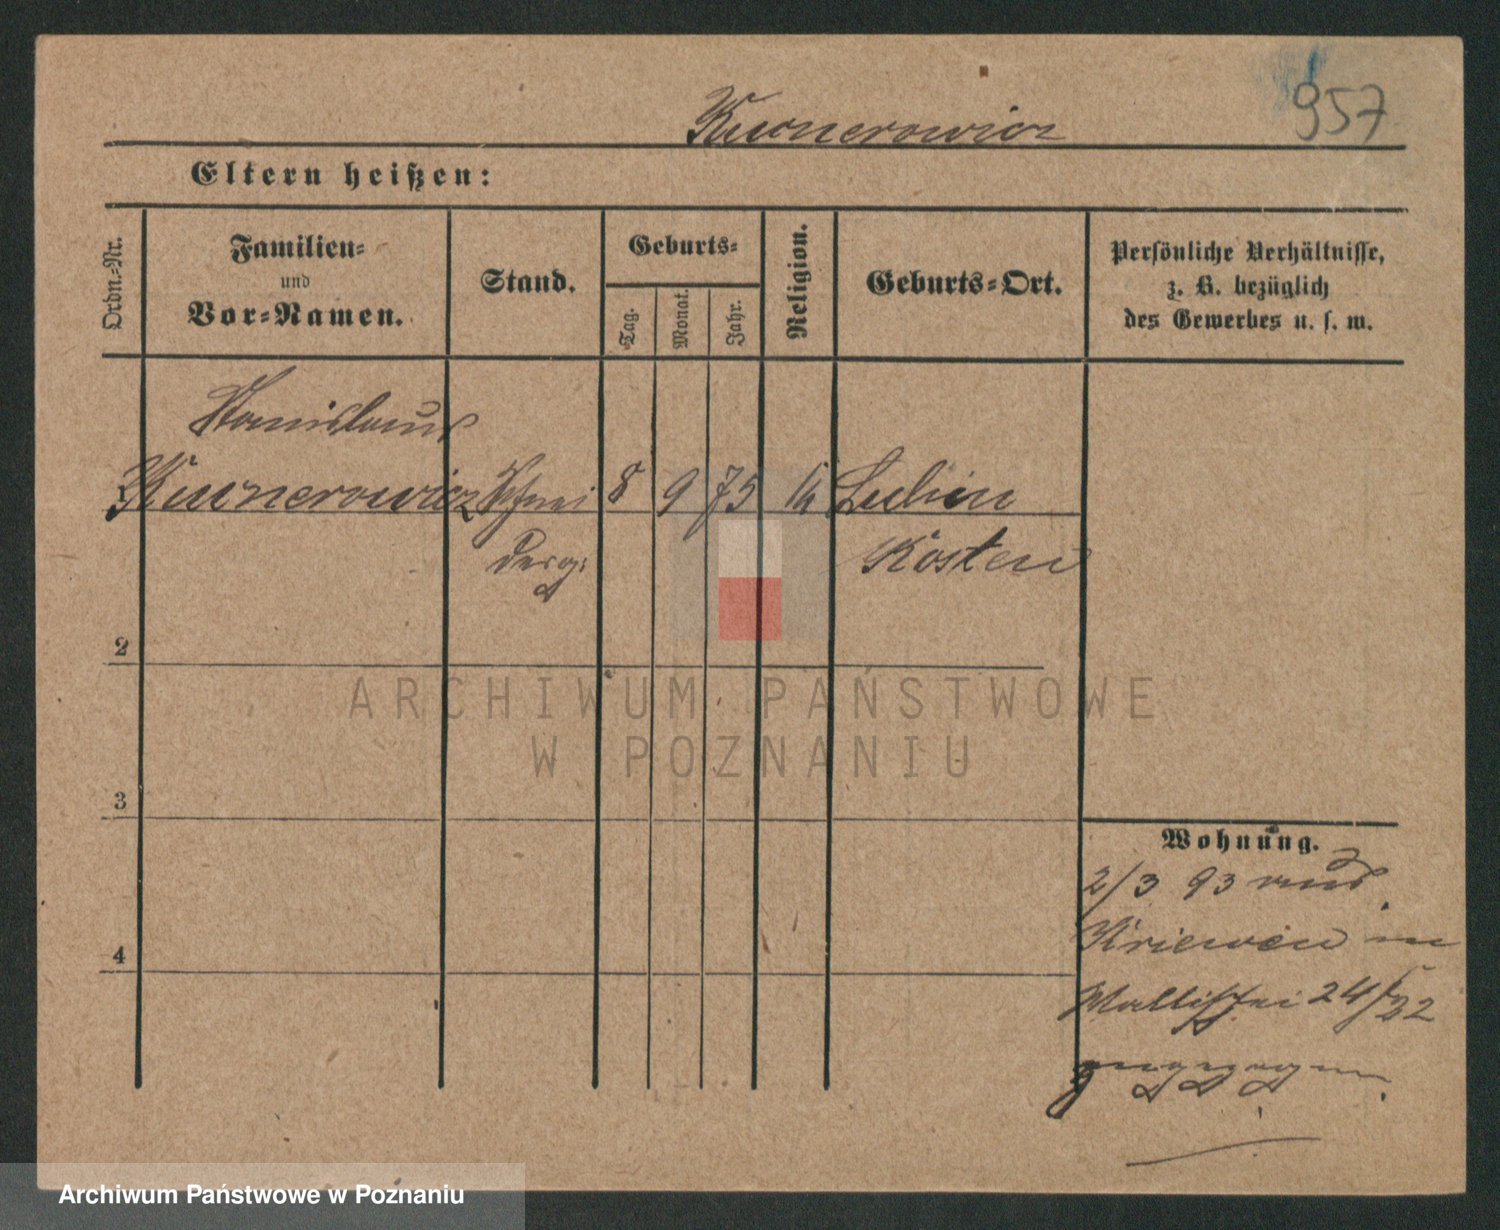 Kurnerowicz
957
Eltern heißen:
Ordn.-Nr.
Familien-
und
Vor-Namen.
Stand.
Geburts-
Tag.
Monat.
Jahr.
Religion.
Geburts-Ort.
Persönliche Verhältnisse,
z. B. bezüglich
des Gewerbes u. s. w.
Stanislaus
Kurnerowicz Schnei 8 9 75 k Lubin
derg. Kosten
2
3
4
Wohnung.
2/3 93 aus
Kriewen in
Wallischei 24/22
ARCHIWUM PAŃSTWOWE
W POZNANIU
Archiwum Państwowe w Poznaniu